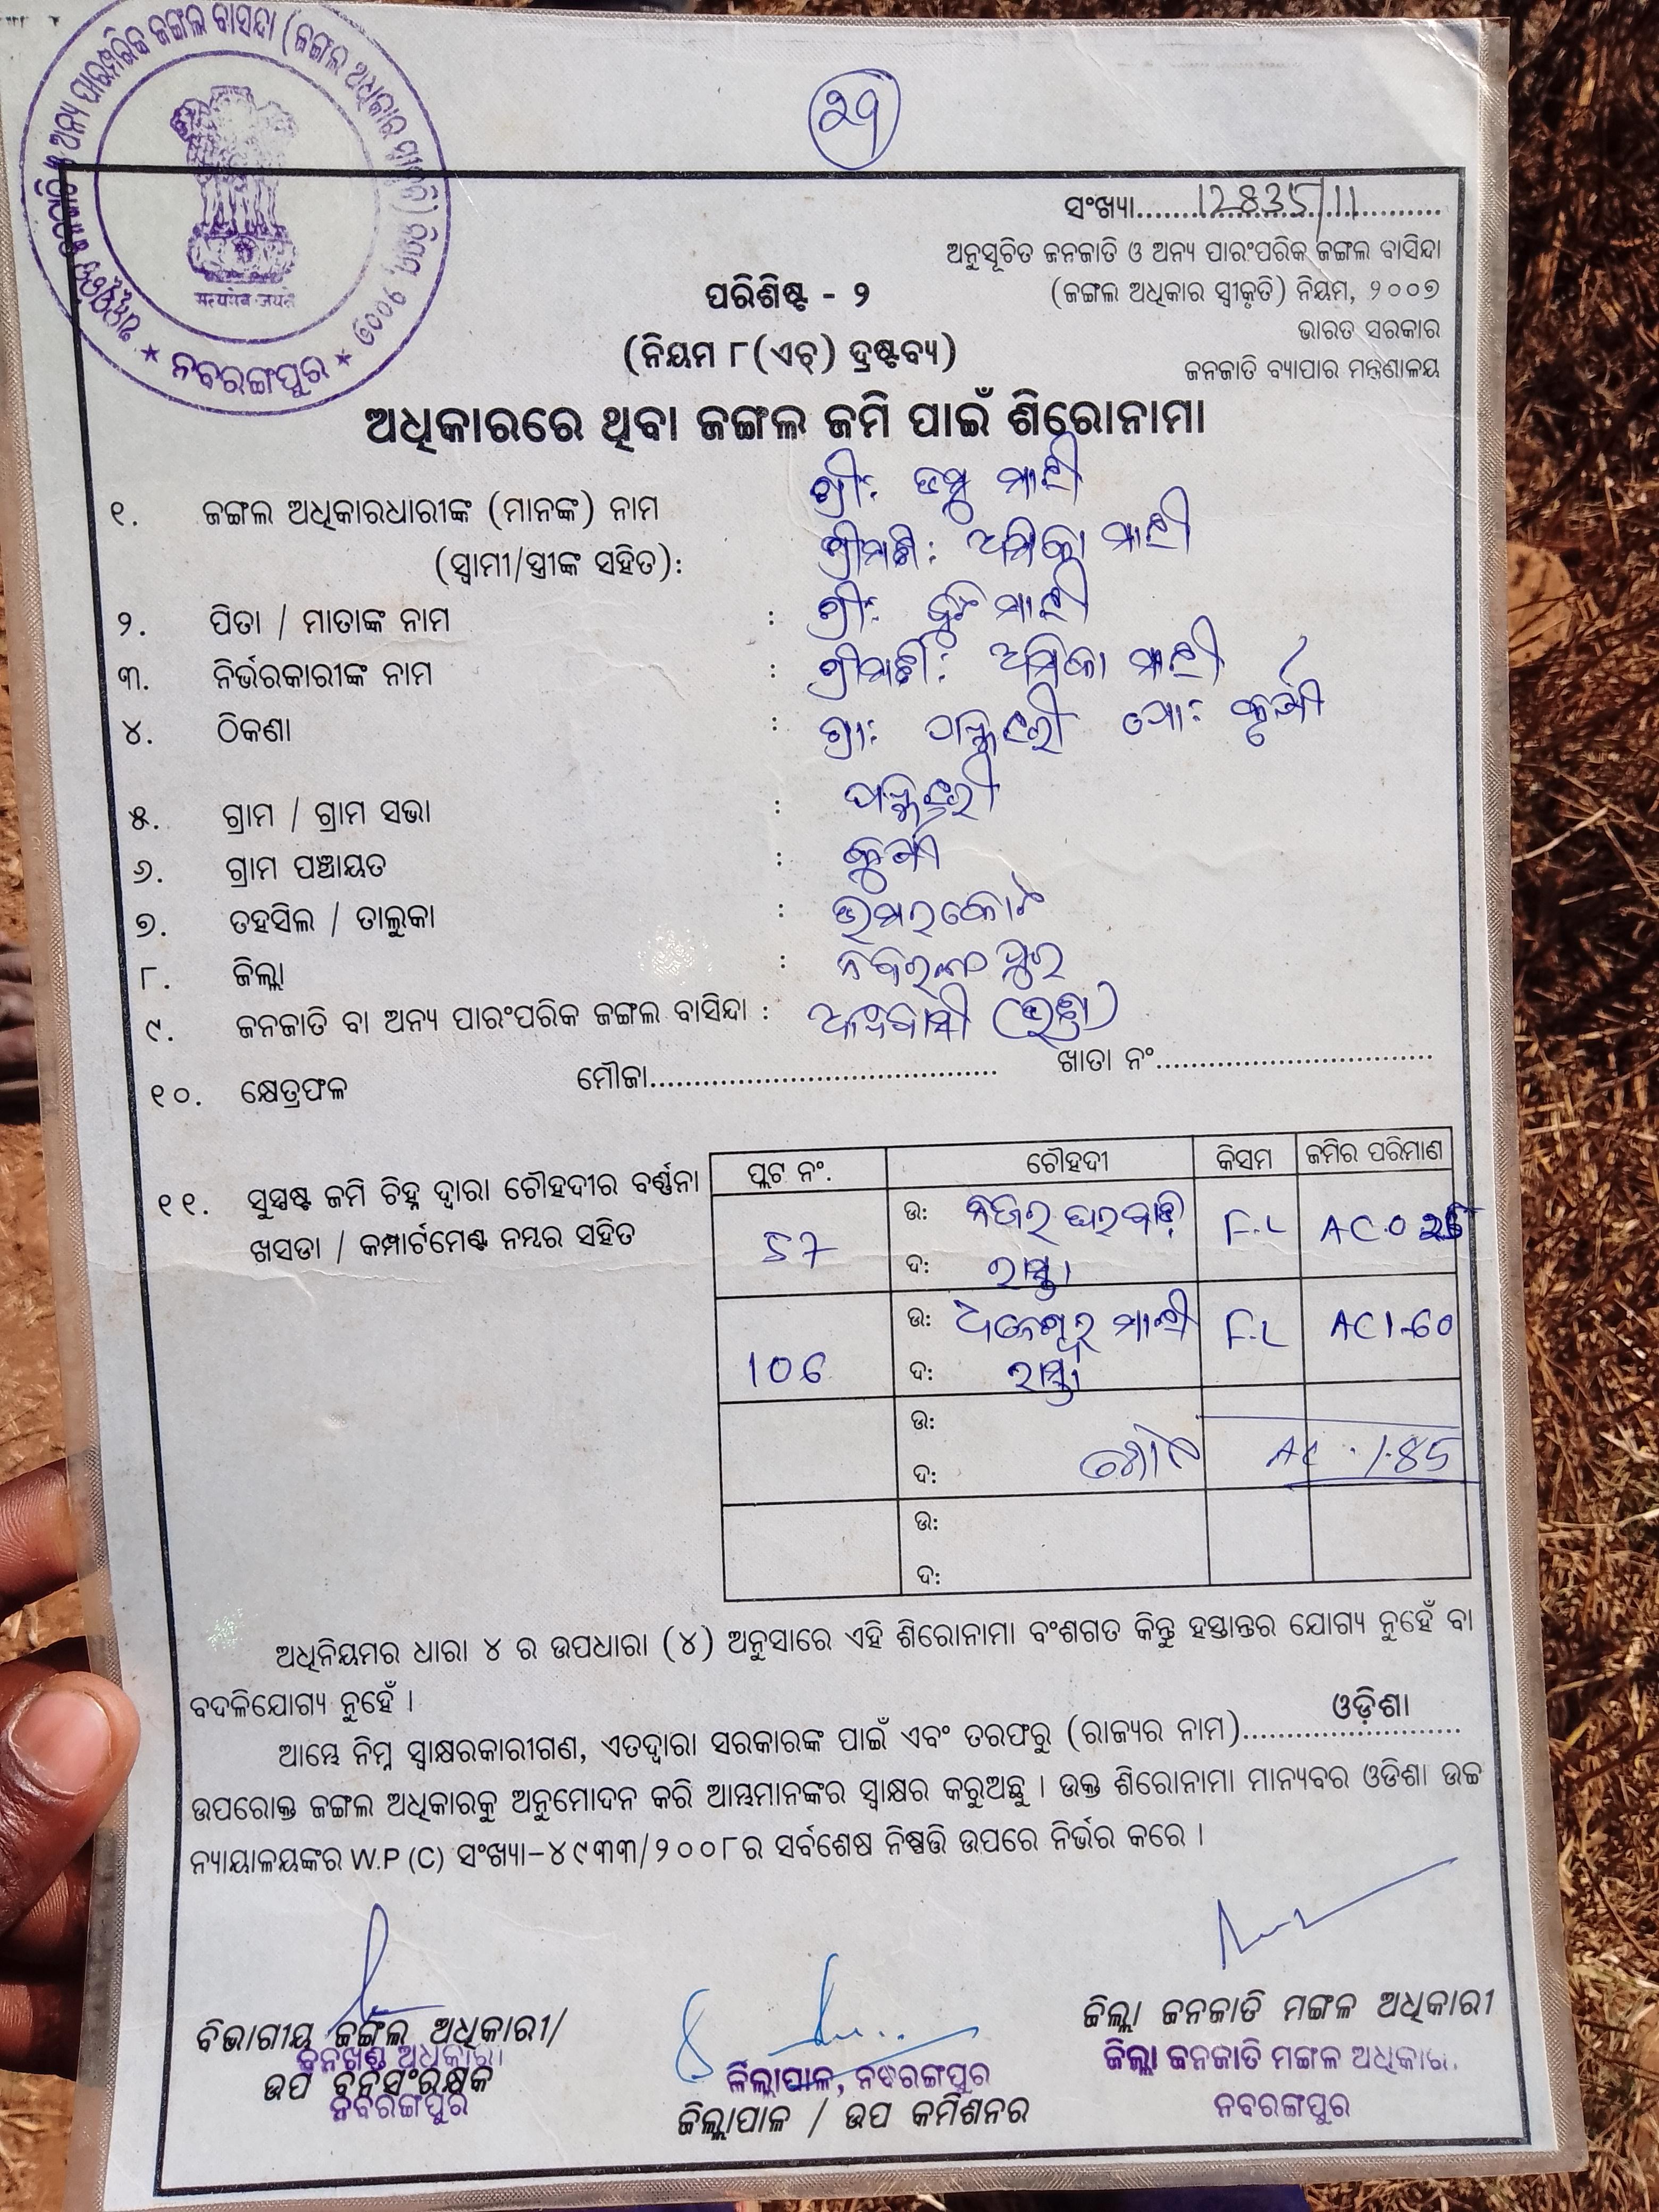 ୬୩
ଅନ୍ୟ ପାରମ୍ପରିକ ଜଙ୍ଗଲ ବାସିନ୍ଦା (ଜଙ୍ଗଲ ଅଧିକାର
★ ନବରଙ୍ଗପୁର ★
सत्यमेव जयते
ସଂଖ୍ୟା
ଅନୁସୂଚିତ ଜନଜାତି ଓ ଅନ୍ୟ ପାରଂପରିକ ଜଙ୍ଗଲ ବାସିନ୍ଦା
(ଜଙ୍ଗଲ ଅଧିକାର ସ୍ୱୀକୃତି) ନିୟମ, ୨୦୦୭
ଭାରତ ସରକାର
ଜନଜାତି ବ୍ୟାପାର ମନ୍ତ୍ରଣାଳୟ
ପରିଶିଷ୍ଟ - ୨
(ନିୟମ ୮(ଏଚ୍) ଦ୍ରଷ୍ଟବ୍ୟ)
ଅଧିକାରରେ ଥିବା ଜଙ୍ଗଲ ଜମି ପାଇଁ ଶିରୋନାମା
୧. ଜଙ୍ଗଲ ଅଧିକାରଧାରୀଙ୍କ (ମାନଙ୍କ) ନାମ ଶ୍ରୀ: ଡମ୍ବୁ ମାଝୀ
(ସ୍ୱାମୀ/ସ୍ତ୍ରୀଙ୍କ ସହିତ): ଶ୍ରୀମତି: ଅମ୍ବିକା ମାଝୀ
୨. ପିତା / ମାତାଙ୍କ ନାମ : ଶ୍ରୀ: ମାଝୀ
୩. ନିର୍ଭରକାରୀଙ୍କ ନାମ : ଶ୍ରୀମତୀ: ଅମ୍ବିକା ମାଝୀ
୪. ଠିକଣା : ଗ୍ରା: ପୋ:
୫. ଗ୍ରାମ / ଗ୍ରାମ ସଭା :
୬. ଗ୍ରାମ ପଞ୍ଚାୟତ :
୭. ତହସିଲ / ତାଲୁକା : ଉମରକୋଟ
୮. ଜିଲ୍ଲା : ନବରଙ୍ଗପୁର
୯. ଜନଜାତି ବା ଅନ୍ୟ ପାରଂପରିକ ଜଙ୍ଗଲ ବାସିନ୍ଦା : ଆଦିବାସୀ
୧୦. କ୍ଷେତ୍ରଫଳ ମୌଜା ଖାତା ନଂ
୧୧. ସୁସ୍ପଷ୍ଟ ଜମି ଚିହ୍ନ ଦ୍ୱାରା ଚୌହଦୀର ବର୍ଣ୍ଣନା
ଖସଡା / କମ୍ପାର୍ଟମେଣ୍ଟ ନମ୍ବର ସହିତ
ପ୍ଲଟ ନଂ. ଚୌହଦୀ କିସମ ଜମିର ପରିମାଣ
57 ଉ: ନିଜର ଘରବାଡ଼ି F.L AC 0.25
ଦ: ରାସ୍ତା
106 ଉ: ମାଝୀ F.L AC 1.60
ଦ: ରାସ୍ତା
ଉ:
ଦ: ମୋଟ AC. 1.85
ଉ:
ଦ:
ଅଧିନିୟମର ଧାରା ୪ ର ଉପଧାରା (୪) ଅନୁସାରେ ଏହି ଶିରୋନାମା ବଂଶଗତ କିନ୍ତୁ ହସ୍ତାନ୍ତର ଯୋଗ୍ୟ ନୁହେଁ ବା
ବଦଳିଯୋଗ୍ୟ ନୁହେଁ ।
ଆମ୍ଭେ ନିମ୍ନ ସ୍ୱାକ୍ଷରକାରୀଗଣ, ଏତଦ୍ୱାରା ସରକାରଙ୍କ ପାଇଁ ଏବଂ ତରଫରୁ (ରାଜ୍ୟର ନାମ) ଓଡ଼ିଶା
ଉପରୋକ୍ତ ଜଙ୍ଗଲ ଅଧିକାରକୁ ଅନୁମୋଦନ କରି ଆମ୍ଭମାନଙ୍କର ସ୍ୱାକ୍ଷର କରୁଅଛୁ । ଉକ୍ତ ଶିରୋନାମା ମାନ୍ୟବର ଓଡିଶା ଉଚ୍ଚ
ନ୍ୟାୟାଳୟଙ୍କର W.P (C) ସଂଖ୍ୟା-୪୯୩୩/୨୦୦୮ର ସର୍ବଶେଷ ନିଷ୍ପତ୍ତି ଉପରେ ନିର୍ଭର କରେ ।
ବିଭାଗୀୟ ଜଙ୍ଗଲ ଅଧିକାରୀ/
ବନଖଣ୍ଡ ଅଧିକାରୀ
ଉପ ବନସଂରକ୍ଷକ
ନବରଙ୍ଗପୁର
ଜିଲ୍ଲାପାଳ, ନବରଙ୍ଗପୁର
ଜିଲ୍ଲାପାଳ / ଉପ କମିଶନର
ଜିଲ୍ଲା ଜନଜାତି ମଙ୍ଗଳ ଅଧିକାରୀ
ଜିଲ୍ଲା ଜନଜାତି ମଙ୍ଗଳ ଅଧିକାରୀ
ନବରଙ୍ଗପୁର